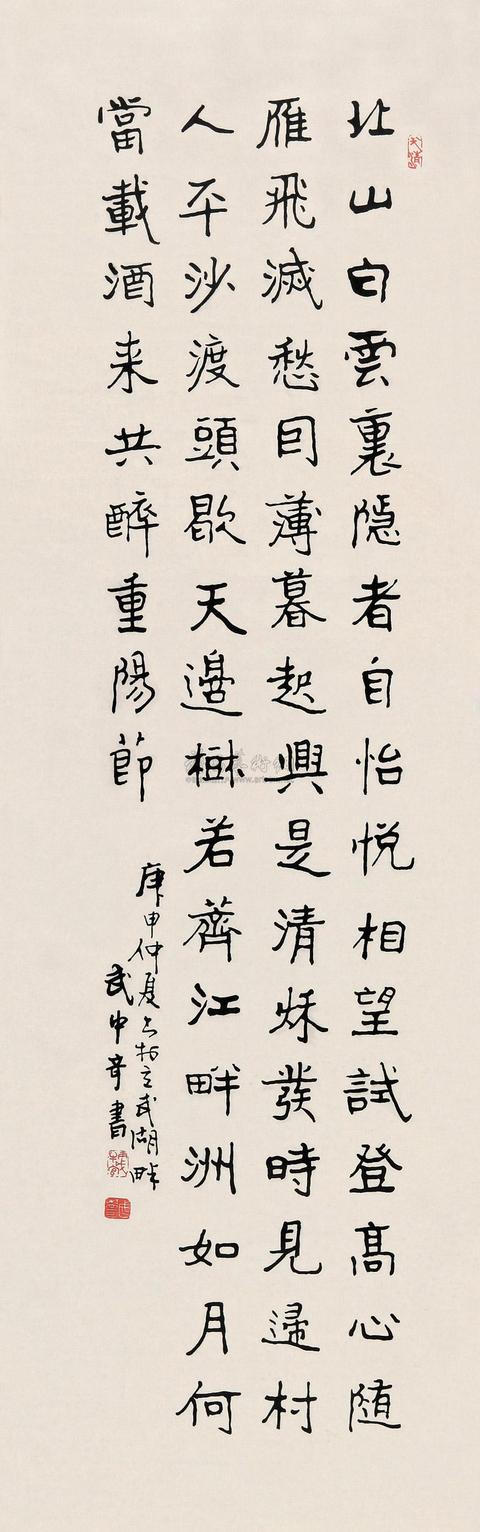 北山白雲裏隱者自怡悅相望試登高心隨
雁飛滅愁因薄暮起興是清秋發時見歸村
人平沙渡頭歇天邊樹若薺江畔洲如月何
當載酒来共醉重陽節
庚申仲夏於玄武湖畔
武中奇書